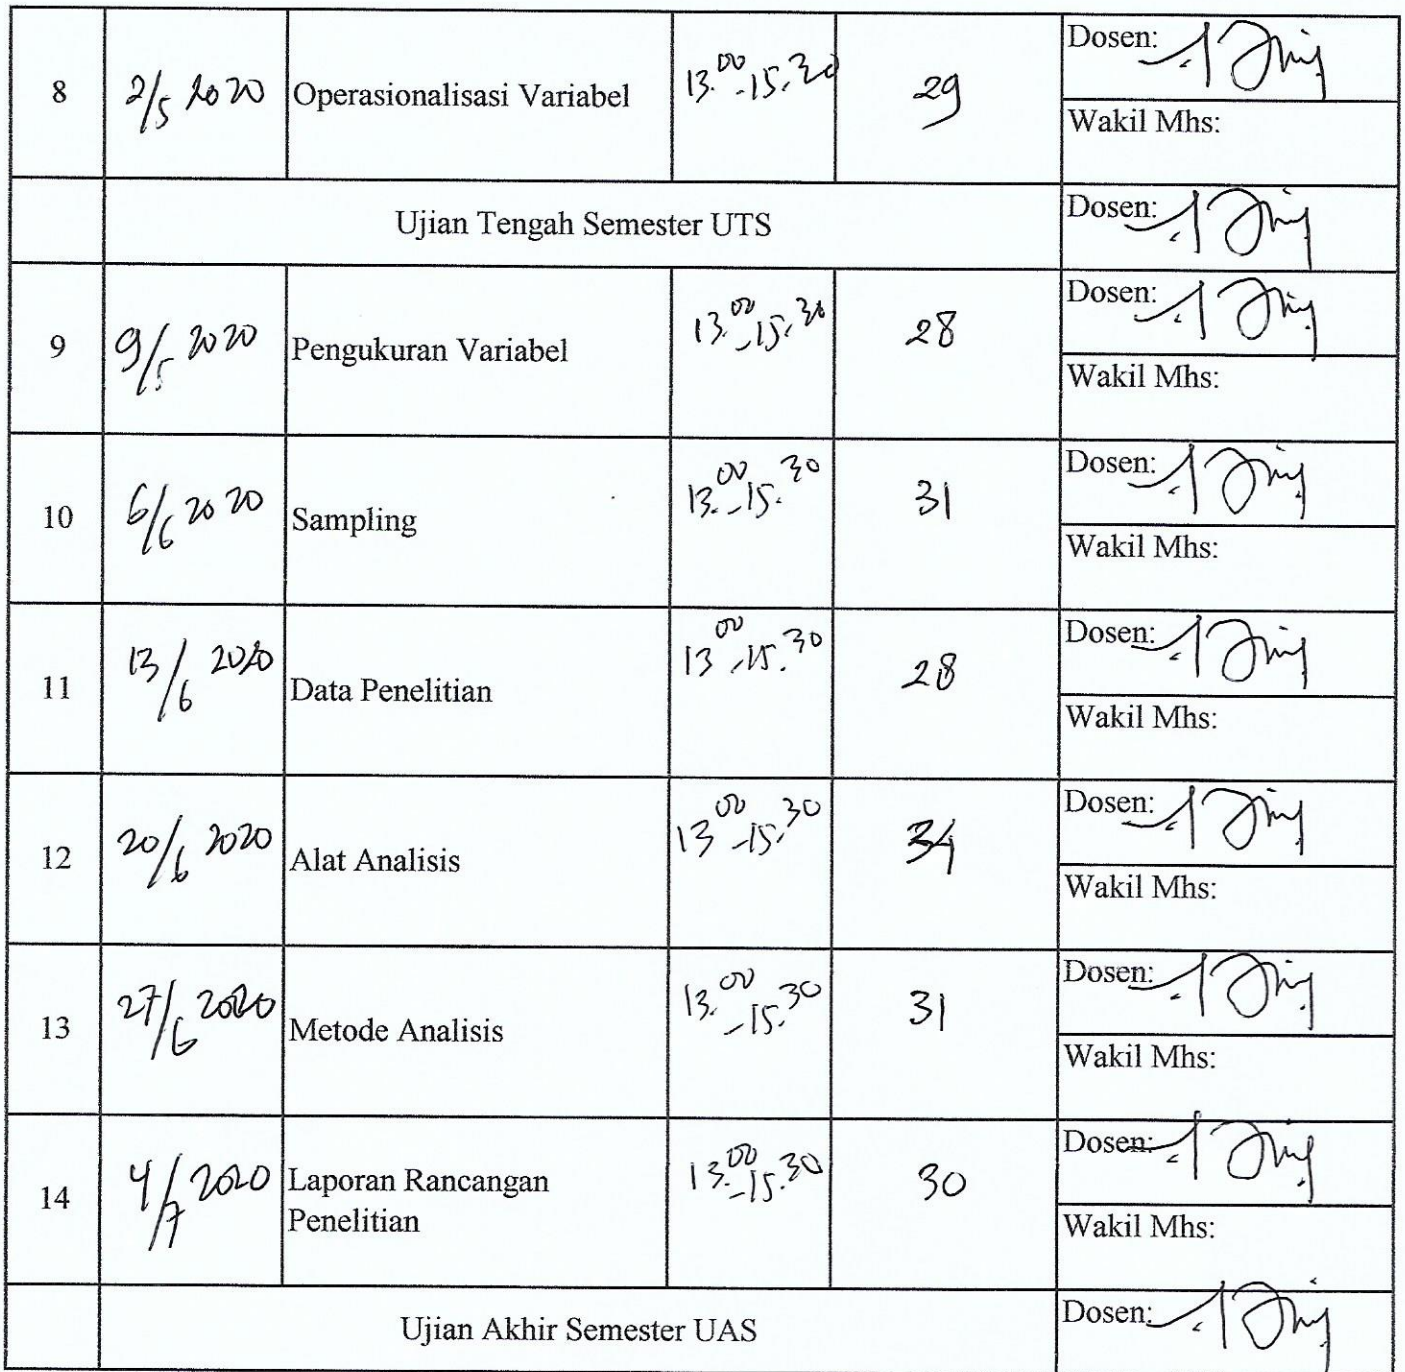 8 2/5 2020 Operasionalisasi Variabel 13.00-15.30 29 Dosen:
Wakil Mhs:
Ujian Tengah Semester UTS Dosen:
9 9/5 2020 Pengukuran Variabel 13.00-15.30 28 Dosen:
Wakil Mhs:
10 6/6 2020 Sampling 13.00-15.30 31 Dosen:
Wakil Mhs:
11 13/6 2020 Data Penelitian 13.00-15.30 28 Dosen:
Wakil Mhs:
12 20/6 2020 Alat Analisis 13.00-15.30 34 Dosen:
Wakil Mhs:
13 27/6 2020 Metode Analisis 13.00-15.30 31 Dosen:
Wakil Mhs:
14 4/7 2020 Laporan Rancangan 13.00-15.30 30 Dosen:
Penelitian
Wakil Mhs:
Ujian Akhir Semester UAS Dosen: